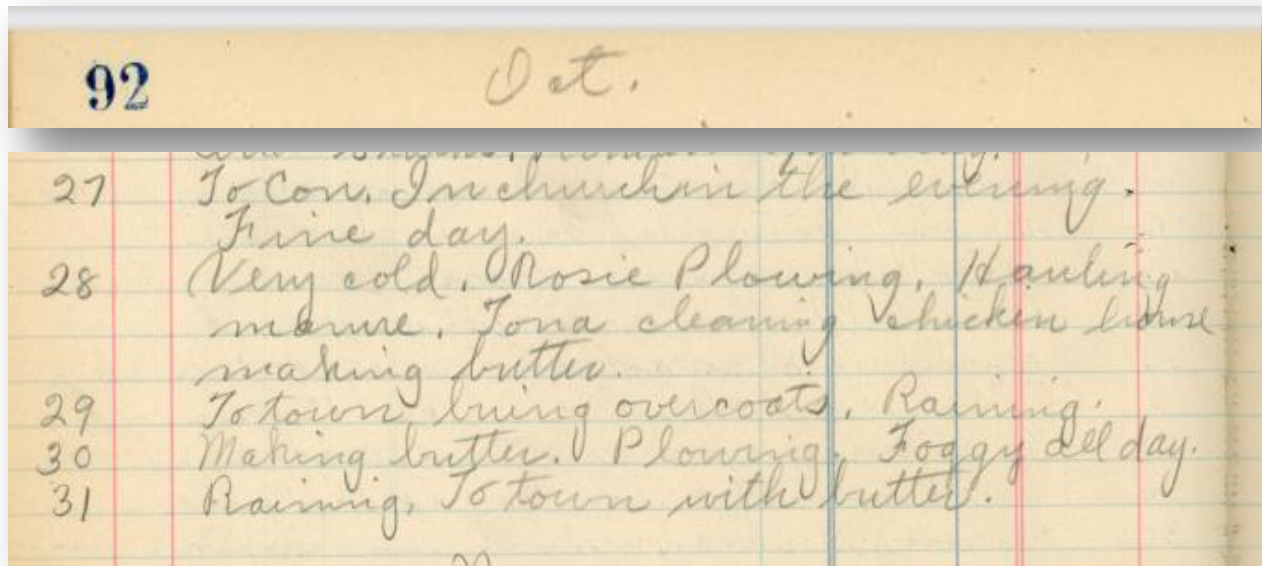 92 Oct.
27 To Con. In church in the evening.
Fine day.
28 Very cold. Rosie Plowing. Hauling
manure. Tona cleaning chicken house
making butter.
29 To town, buing overcoats. Raining.
30 Making butter. Plowing. Foggy all day.
31 Raining. To town with butter.